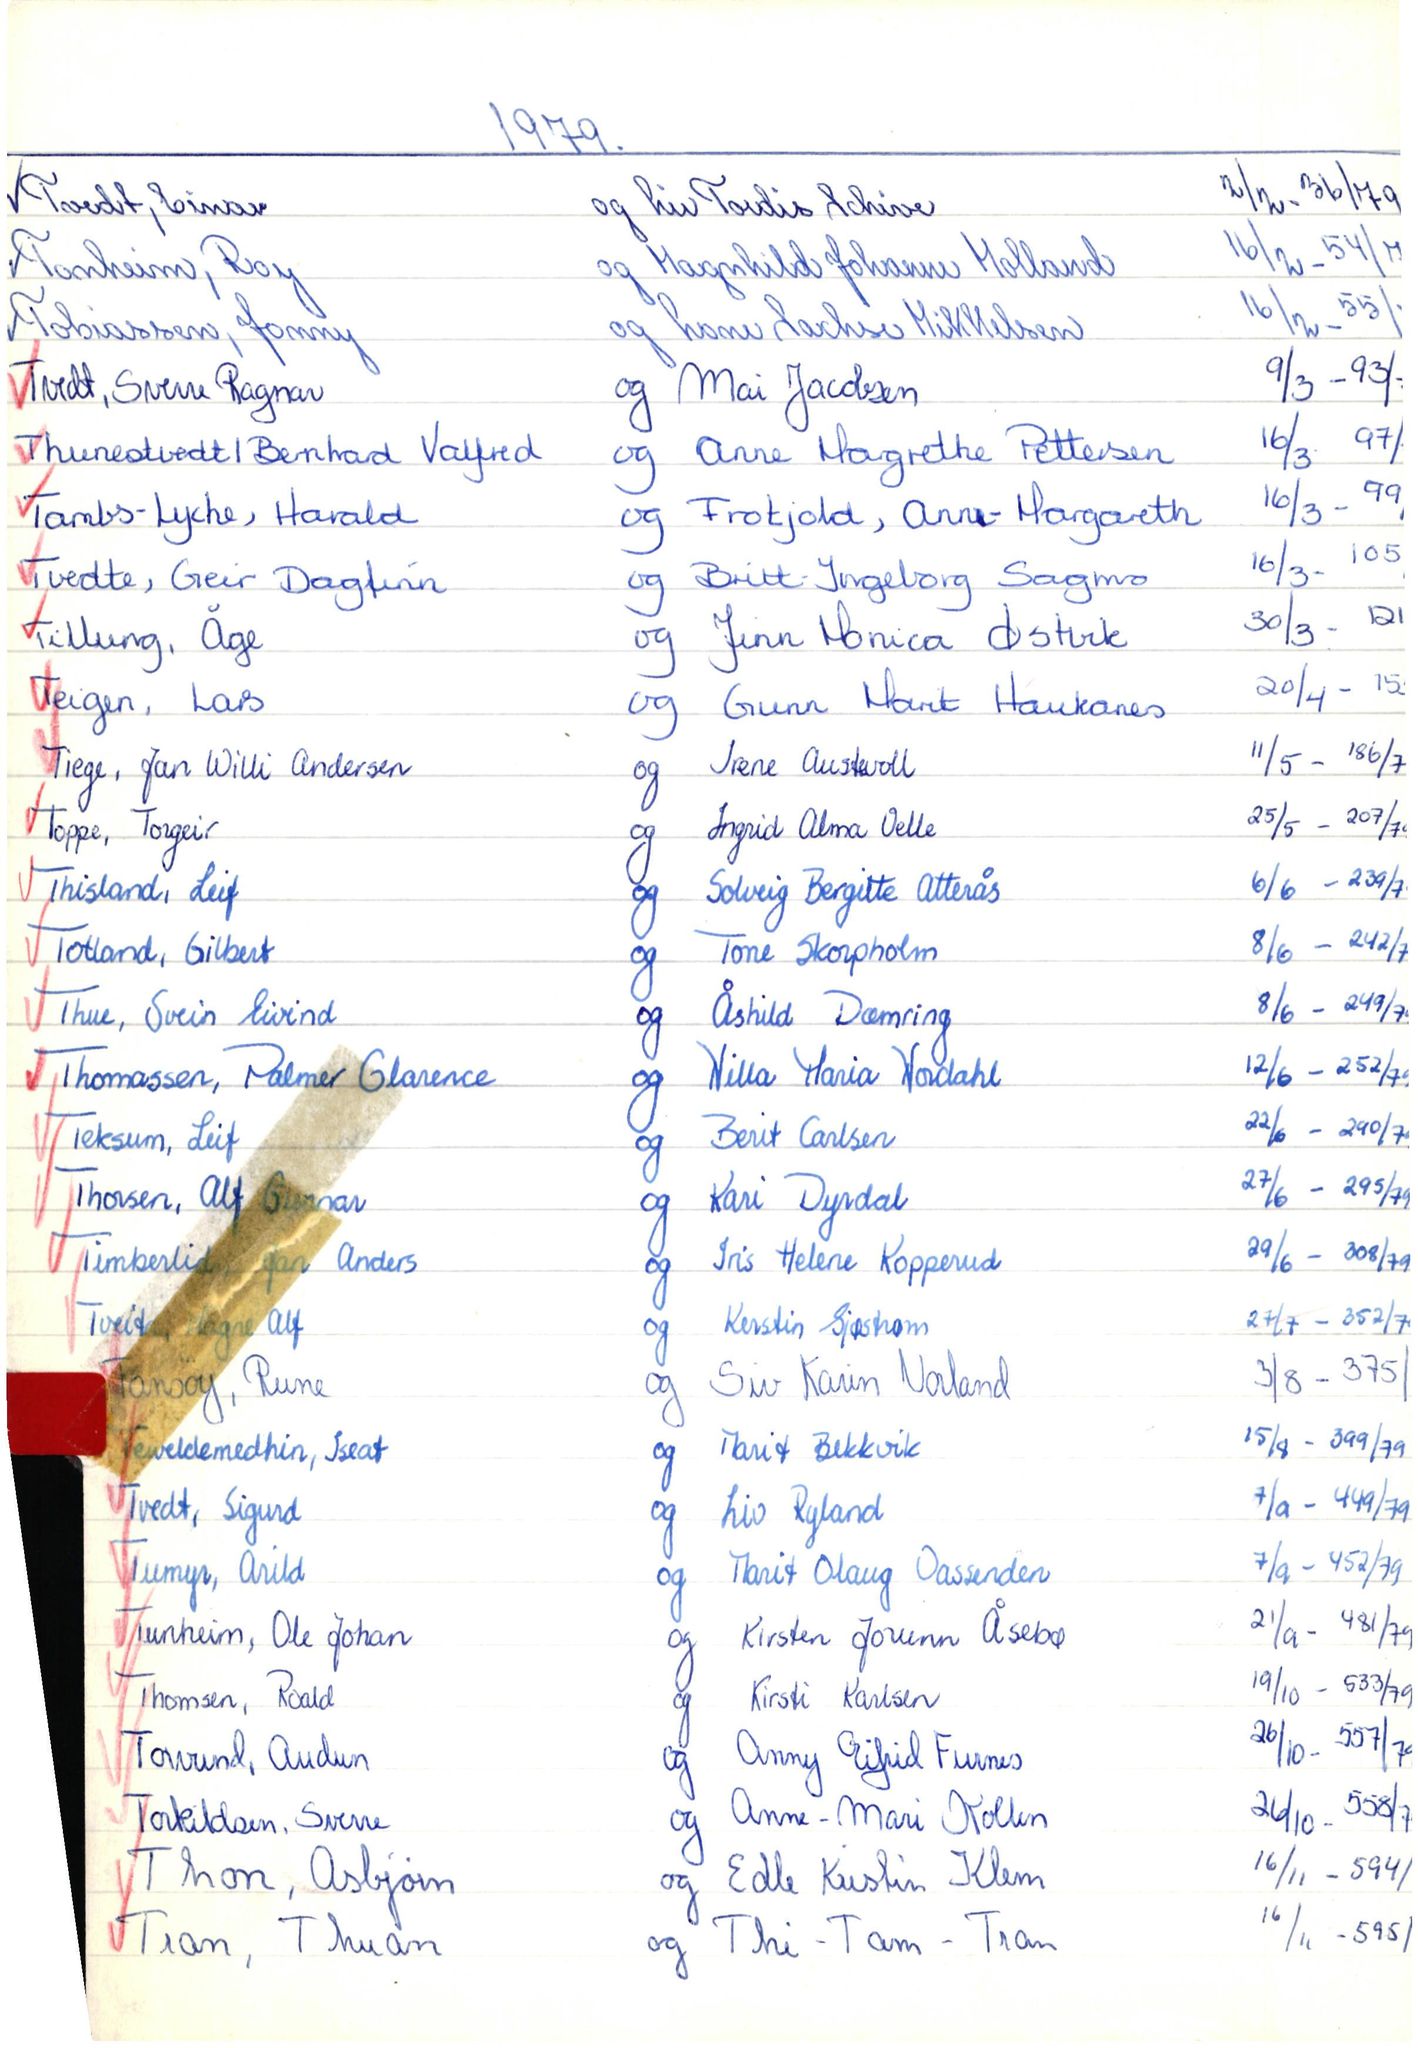 1979.
Tvedt, Einar og Liv Tordis Schive 2/2 - 36/79
Tonheim, Roy og Magnhild Johanne Molland 16/2 - 54/7
Tobiassen, Jonny og Lachse Mikkelsen 16/2 - 55/
Tvedt, Sverre Ragnar og Mai Jacobsen 9/3 - 93/
Thunestvedt, Bernhard Valfred og Anne Margrethe Pettersen 16/3 97/
Tambs-Lyche, Harald og Frotjold, Anne-Margareth 16/3 - 99
Tvedte, Geir Dagfinn og Britt-Ingeborg Sagmo 16/3 - 105
Tillung, Åge og Jinn Monica Østvik 30/3 - 121
Teigen, Lars og Gunn Marit Haukanes 20/4 - 15
Tiege, Jan Willi Andersen og Irene Austevoll 11/5 - 186/7
Toppe, Torgeir og Ingrid Alma Velle 25/5 - 207/79
Thisland, Leif og Solveig Bergitte Atterås 6/6 - 239/7
Totland, Gilbert og Tone Skorpholm 8/6 - 242/7
Thue, Svein Eivind og Åshild Dæmring 8/6 - 249/79
Thomassen, Palmer Clarence og Willa Maria Nordahl 12/6 - 252/79
Teksum, Leif og Berit Carlsen 22/6 - 290/79
Thorsen, Alf Gunnar og Kari Dyrdal 27/6 - 295/79
Timberlid, Jan Anders og Iris Helene Kopperud 29/6 - 308/79
Tveita, Magne Alf og Kerstin Sjøstrøm 27/7 - 352/7
Tansöy, Rune og Siv Karin Vorland 3/8 - 375/
Teweldemedhin, Iseat og Marit Bekkvik 15/8 - 399/79
Tvedt, Sigurd og Liv Ryland 7/9 - 449/79
Tumyr, Arild og Marit Olaug Vassenden 7/9 - 452/79
Tunheim, Ole Johan og Kirsten Jorunn Åsebø 21/9 - 481/79
Thomsen, Roald og Kirsti Karlsen 19/10 - 533/79
Torvund, Audun og Anny Eifrid Furnes 26/10 - 557/79
Torkildsen, Sverre og Anne-Mari Kollen 26/10 - 558/7
Thon, Asbjörn og Edle Kirstin Klem 16/11 - 594/
Tran, Thuân og Thi-Tam-Tran 16/11 - 595/